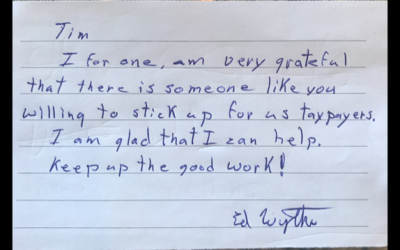 Tim
I for one, am very grateful
that there is someone like you
willing to stick up for us taxpayers.
I am glad that I can help.
Keep up the good work!
Ed